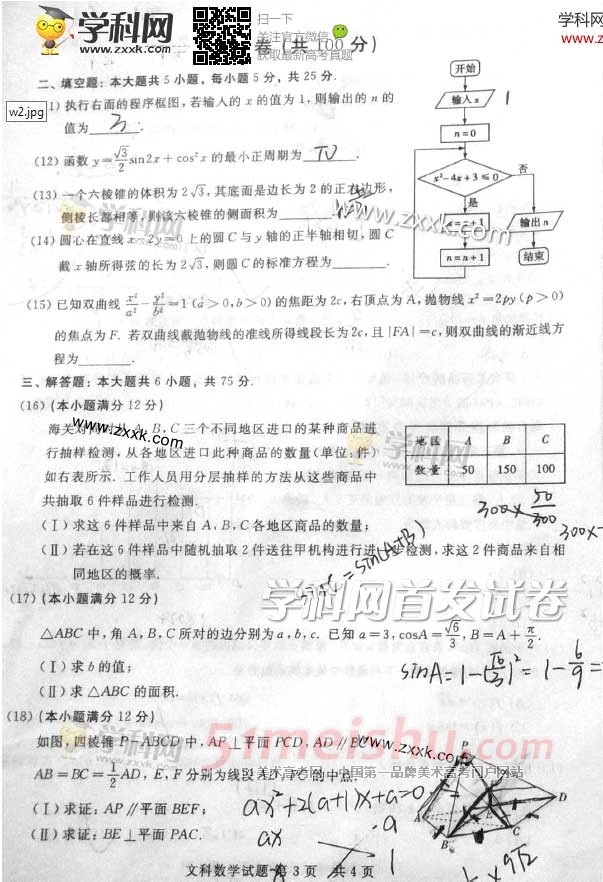 学科网
WWW.ZXXK.COM
扫一下
关注官方微信
获取最新高考真题
学科网
www.zxx
卷 (共 100 分)
w2.jpg
二、填空题:本大题共 5 小题,每小题 5 分,共 25 分.
1) 执行右面的程序框图,若输入的 x 的值为 1,则输出的 n 的
值为 3 .
(12) 函数 y=√3/2 sin2x + cos²x 的最小正周期为 π .
(13) 一个六棱锥的体积为 2√3,其底面是边长为 2 的正六边形,
侧棱长都相等,则该六棱锥的侧面积为 .
(14) 圆心在直线 x-2y=0 上的圆 C 与 y 轴的正半轴相切,圆 C
截 x 轴所得弦的长为 2√3,则圆 C 的标准方程为 .
开始
输入 x
1
n=0
x²-4x+3≤0
否
是
x=x+1
输出 n
n=n+1
结束
学科网
www.zxxk.com
www.zxxk.com
(15) 已知双曲线 x²/a² - y²/b² =1 (a>0,b>0) 的焦距为 2c,右顶点为 A,抛物线 x²=2py (p>0)
的焦点为 F. 若双曲线截抛物线的准线所得线段长为 2c,且 |FA|=c,则双曲线的渐近线方
程为 .
三、解答题:本大题共 6 小题,共 75 分.
(16) (本小题满分 12 分)
www.zxxk.com
学科网
海关对同时从 A,B,C 三个不同地区进口的某种商品进
行抽样检测,从各地区进口此种商品的数量(单位:件)
如右表所示. 工作人员用分层抽样的方法从这些商品中
共抽取 6 件样品进行检测.
地区 A B C
数量 50 150 100
300× 50/300
300×
(Ⅰ) 求这 6 件样品中来自 A,B,C 各地区商品的数量;
(Ⅱ) 若在这 6 件样品中随机抽取 2 件送往甲机构进行进一步检测,求这 2 件商品来自相
同地区的概率.
sinC=sin(A+B)
学科网首发试卷
(17) (本小题满分 12 分)
△ABC 中,角 A,B,C 所对的边分别为 a,b,c. 已知 a=3,cosA=√6/3,B=A+π/2.
(Ⅰ) 求 b 的值;
(Ⅱ) 求 △ABC 的面积.
sinA=1-(√6/3)²=1-6/9=
(18) (本小题满分 12 分)
51meishu.com
www.zxxk.com
如图,四棱锥 P-ABCD 中,AP⊥平面 PCD,AD∥BC,
AB=BC=1/2 AD,E,F 分别为线段 AD,PC 的中点.
美术高考网 中国第一品牌美术高考门户网站
(Ⅰ) 求证:AP∥平面 BEF;
(Ⅱ) 求证:BE⊥平面 PAC.
ax²+2(a+1)x+a=0
ax a
1
P
A
B
C
D
E
×9√2
文科数学试题 第 3 页 共 4 页